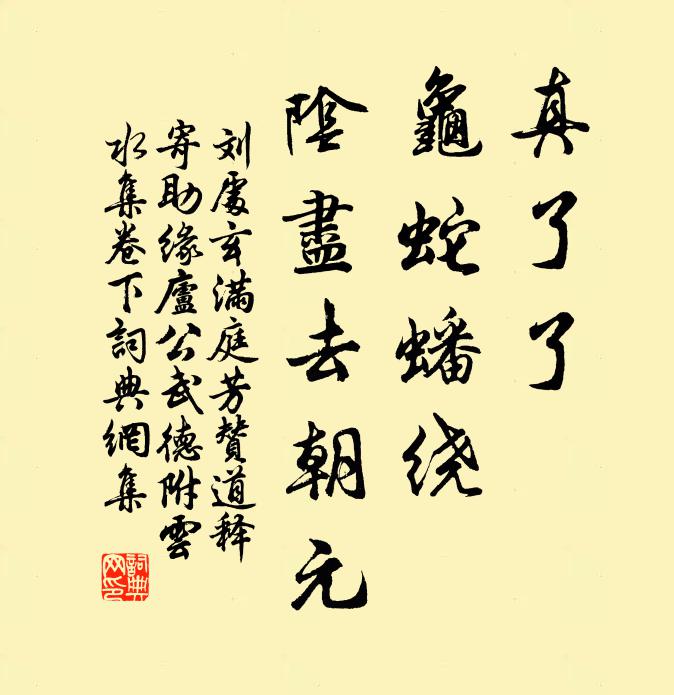 真了了
龜蛇蟠绕
陰盡去朝元
刘處玄满庭芳賛道释
寄助缘廬公武德附雲
水集卷下詞典網集
詞典网印